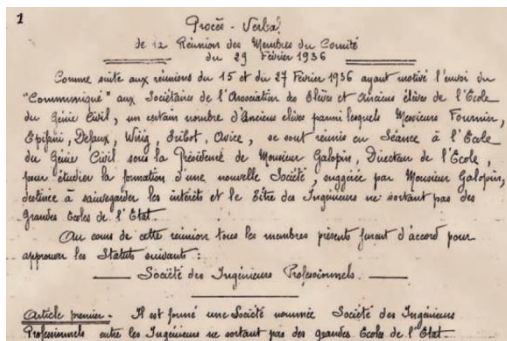 1
Procès-Verbal
de la Réunion des Membres du Comité
du 29 Février 1936
Comme suite aux réunions du 15 et du 27 Février 1936 ayant motivé l'envoi du
"Communiqué" aux Sociétaires de l'Association des Elèves et Anciens élèves de l'Ecole
du Génie Civil, un certain nombre d'Anciens élèves parmi lesquels Messieurs Fournier,
se sont réunis en Séance à l'Ecole
du Génie Civil sous la Présidence de Monsieur Galopin, Directeur de l'Ecole,
pour étudier la formation d'une nouvelle Société, suggérée par Monsieur Galopin,
destinée à sauvegarder les intérêts et le Titre des Ingénieurs ne sortant pas des
Grandes Ecoles de l'Etat.
Au cours de cette réunion tous les membres présents furent d'accord pour
approuver les Statuts suivants :
Société des Ingénieurs Professionnels.
Article premier.- Il est formé une Société nommée Société des Ingénieurs
Professionnels entre les Ingénieurs ne sortant pas des grandes Ecoles de l'Etat.